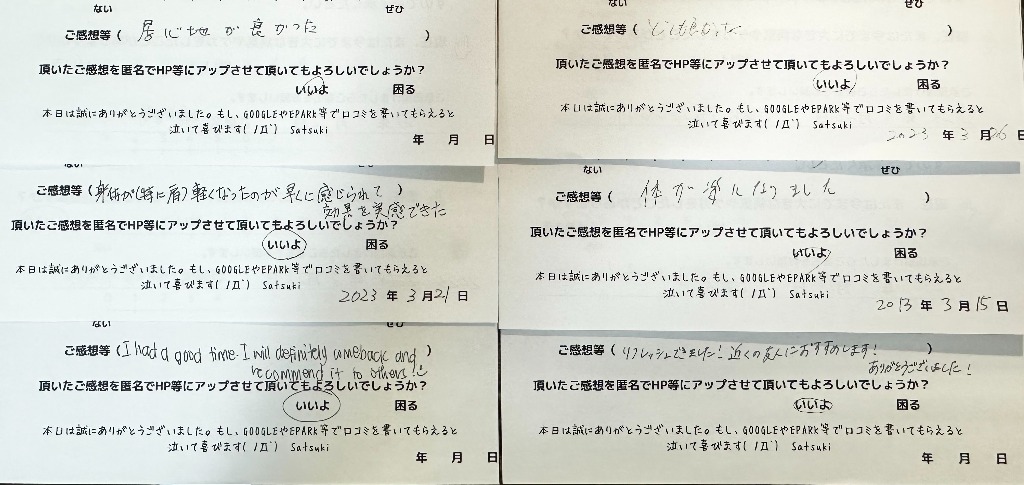 ない ぜひ
ご感想等( 居心地が良かった )
頂いたご感想を匿名でHP等にアップさせて頂いてもよろしいでしょうか?
いいよ 困る
本日は誠にありがとうございました。もし、GOOGLEやEPARK等で口コミを書いてもらえると
泣いて喜びます(ノД`) Satsuki
年 月 日
ない ぜひ
ご感想等( とても良かった )
頂いたご感想を匿名でHP等にアップさせて頂いてもよろしいでしょうか?
いいよ 困る
本日は誠にありがとうございました。もし、GOOGLEやEPARK等で口コミを書いてもらえると
泣いて喜びます(ノД`) Satsuki
2023 年 3 月 26 日
ない ぜひ
ご感想等( 身体が(特に肩)軽くなったのが早くに感じられて )
効果を実感できた
頂いたご感想を匿名でHP等にアップさせて頂いてもよろしいでしょうか?
いいよ 困る
本日は誠にありがとうございました。もし、GOOGLEやEPARK等で口コミを書いてもらえると
泣いて喜びます(ノД`) Satsuki
2023 年 3 月 21 日
ない ぜひ
ご感想等( 体が楽になりました )
頂いたご感想を匿名でHP等にアップさせて頂いてもよろしいでしょうか?
いいよ 困る
本日は誠にありがとうございました。もし、GOOGLEやEPARK等で口コミを書いてもらえると
泣いて喜びます(ノД`) Satsuki
2013 年 3 月 15 日
ない ぜひ
ご感想等( I had a good time. I will definitely comeback and )
recommend it to others!
頂いたご感想を匿名でHP等にアップさせて頂いてもよろしいでしょうか?
いいよ 困る
本日は誠にありがとうございました。もし、GOOGLEやEPARK等で口コミを書いてもらえると
泣いて喜びます(ノД`) Satsuki
年 月 日
ない ぜひ
ご感想等( リフレッシュできました!近くの友人におすすめします! )
ありがとうございました!
頂いたご感想を匿名でHP等にアップさせて頂いてもよろしいでしょうか?
いいよ 困る
本日は誠にありがとうございました。もし、GOOGLEやEPARK等で口コミを書いてもらえると
泣いて喜びます(ノД`) Satsuki
年 月 日